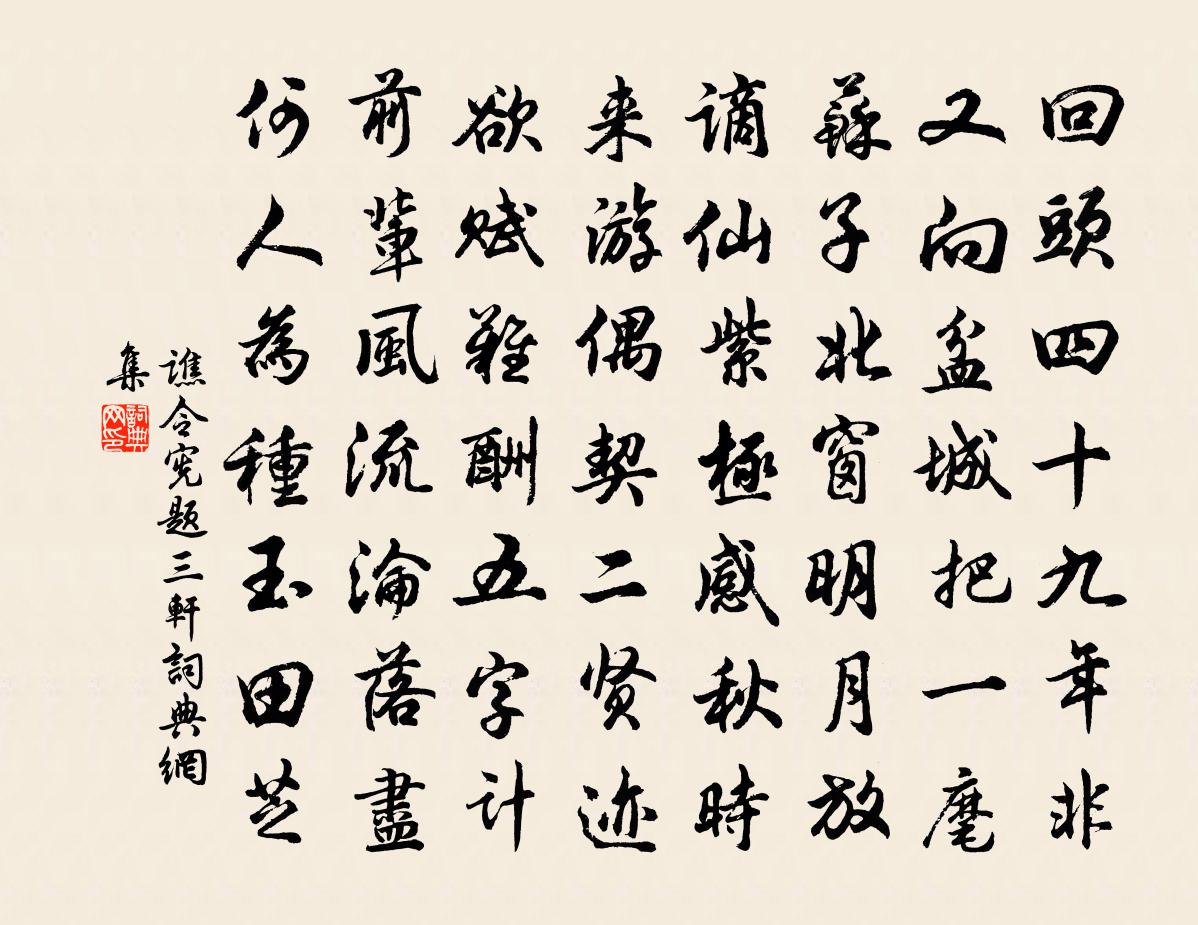 回頭四十九年非
又向盆城把一麾
蘇子北窗明月放
謫仙紫極感秋時
来游偶契二贤迹
欲赋難酬五字計
前輩風流淪落盡
何人為種玉田芝
譙令憲題三軒詞典網
集
詞典网印